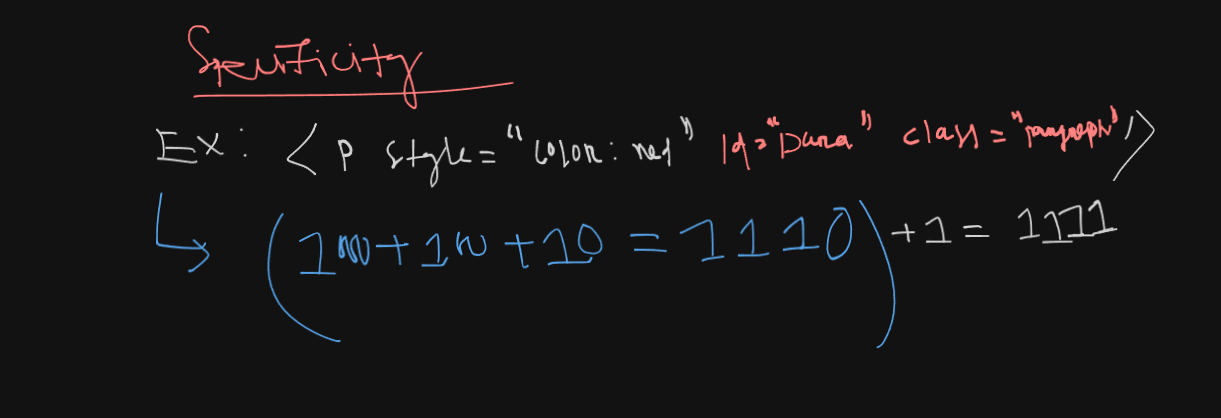 Specificity
Ex: <p style="color: red" Id="para" class="paragraph"/>
(1000+100+10=1110)+1=1111